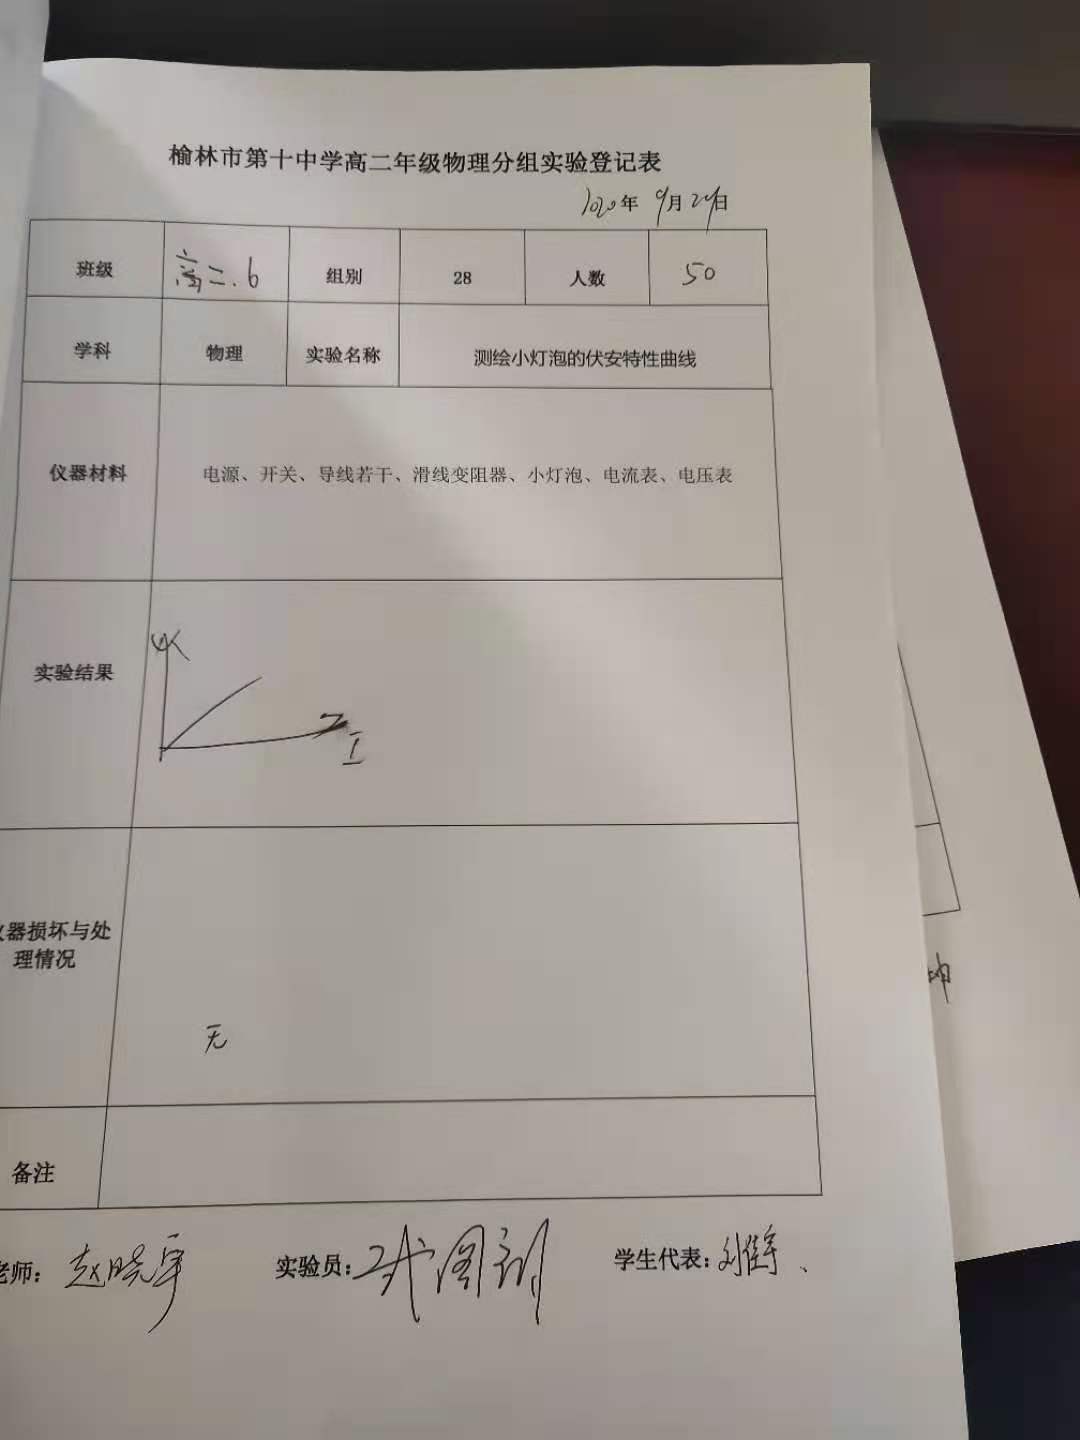 榆林市第十中学高二年级物理分组实验登记表
2020年 9月29日
班级 高二.6 组别 28 人数 50
学科 物理 实验名称 测绘小灯泡的伏安特性曲线
仪器材料 电源、开关、导线若干、滑线变阻器、小灯泡、电流表、电压表
实验结果
I
器损坏与处
理情况
无
备注
老师: 赵晓军 实验员: 学生代表: